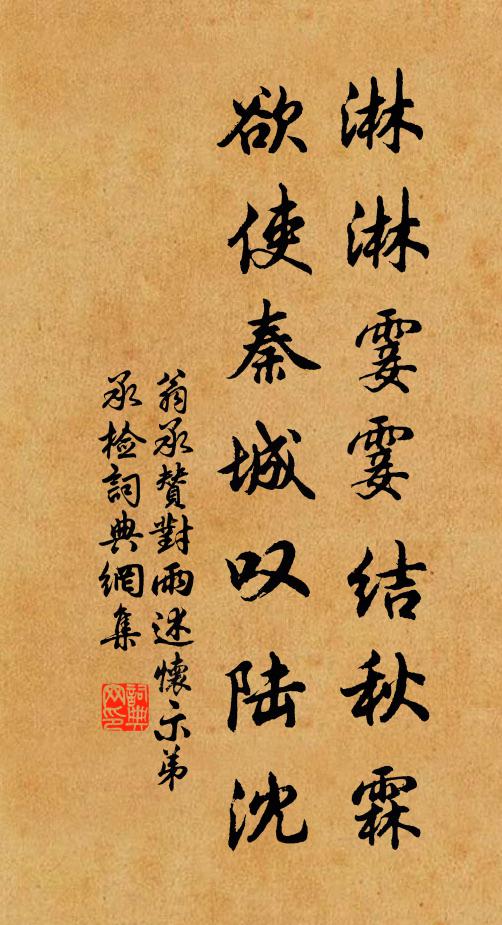 淋淋霎霎结秋霖
欲使秦城叹陆沈
翁承赞對雨述懷示弟
承检詞典網集
詞典网印